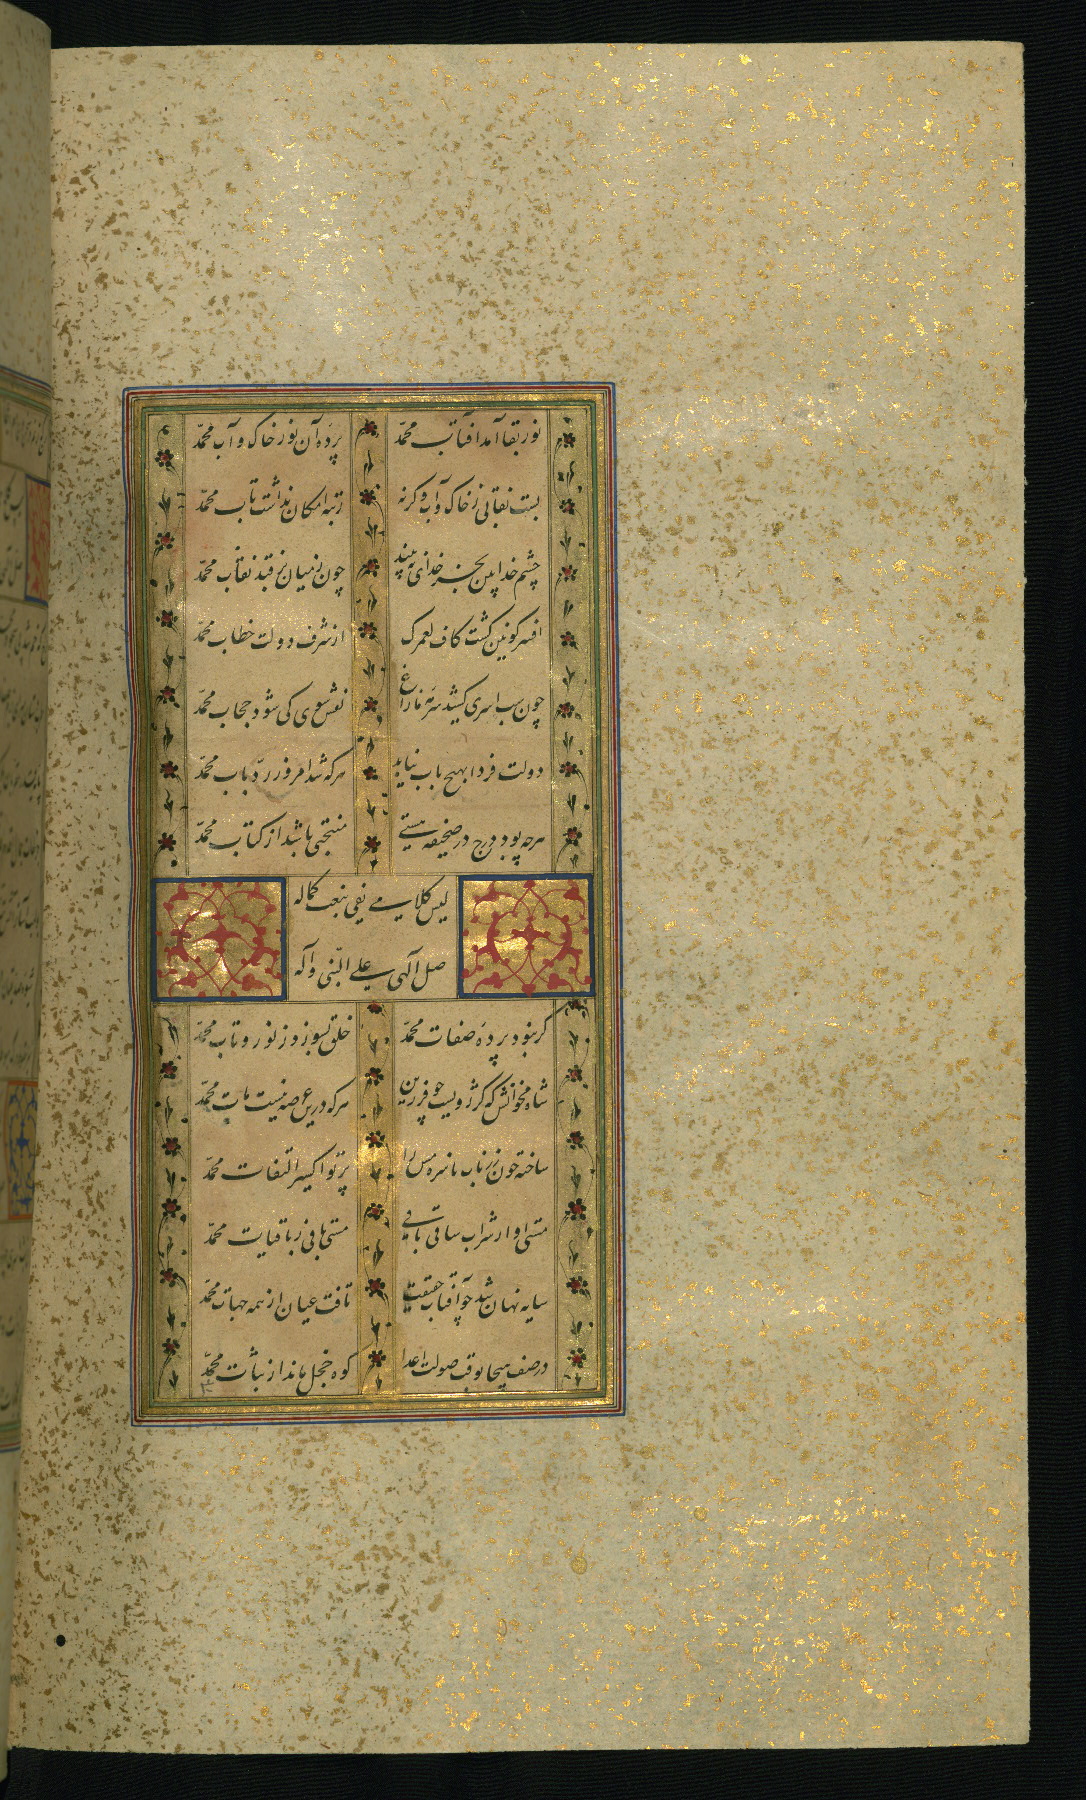 نور بقا آمد آفتاب محمّد پردهٔ آن نور خاک و آب محمّد
بست نقابی ز خاک و آب وگرنه رتبهٔ امکان نداشت تاب محمّد
چشم خدا بین بجز خدای نبیند چون ز میان برفتد نقاب محمّد
افسر کونین گشت کاف لعمرک از شرف دولت خطاب محمّد
چون شب اسری کشید سرمهٔ مازاغ نقش سوی کی شود حجاب محمّد
دولت فردا بهیچ باب نیابد هرکه شد امروز ردّ باب محمّد
هرچه بود درج در صحیفهٔ هستی منتخبی باشد از کتاب محمّد
لیس کلامی یفی بنعت کماله
صلّ الهی علی النّبی و آله
گر نبود پردهٔ صفات محمّد خلق بسوزد ز نور ذات محمّد
شاه مخوانش که کژ رویست چو فرزین هرکه درین عرصه نیست مات محمّد
ساخته چون زرّ ناب ناسره مس را پرتو اکسیر التفات محمّد
مستی او از شراب ساقی باقی مستی ما فی ز باقیات محمّد
سایه نهان شد چو آفتاب حقیقت تافت عیان از همه جهات محمّد
در صف هیجا بوقت صولت اعدا کوه خجل ماند از ثبات محمّد